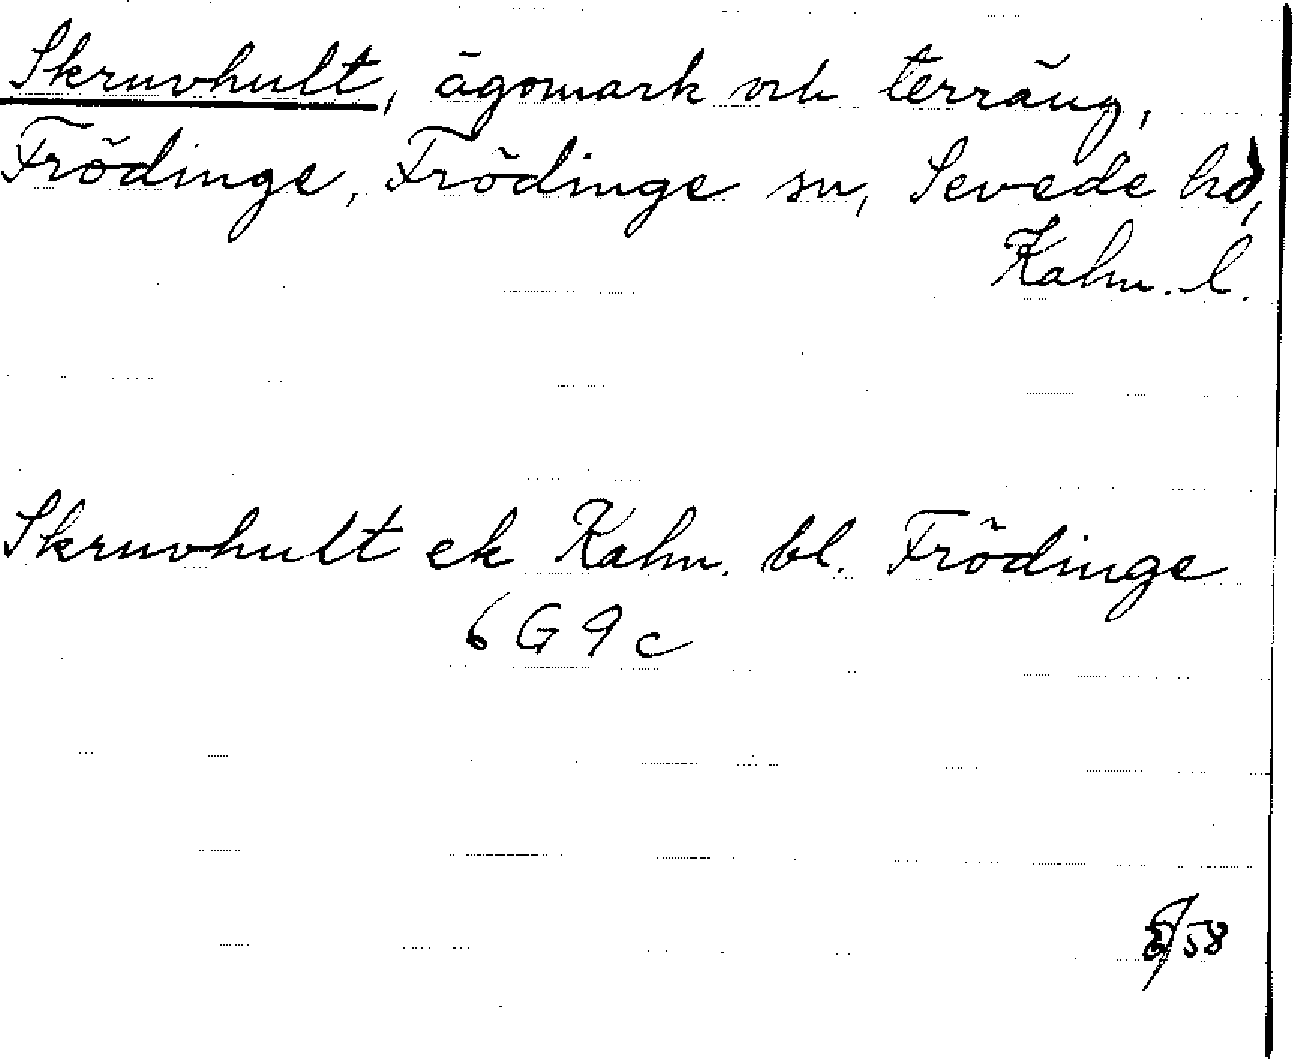 Skruvhult, ägomark och terräng,
Frödinge, Frödinge sn, Sevede hd,
Kalm. l.
Skruvhult ek Kalm. bl. Frödinge
6 G 9 c
58